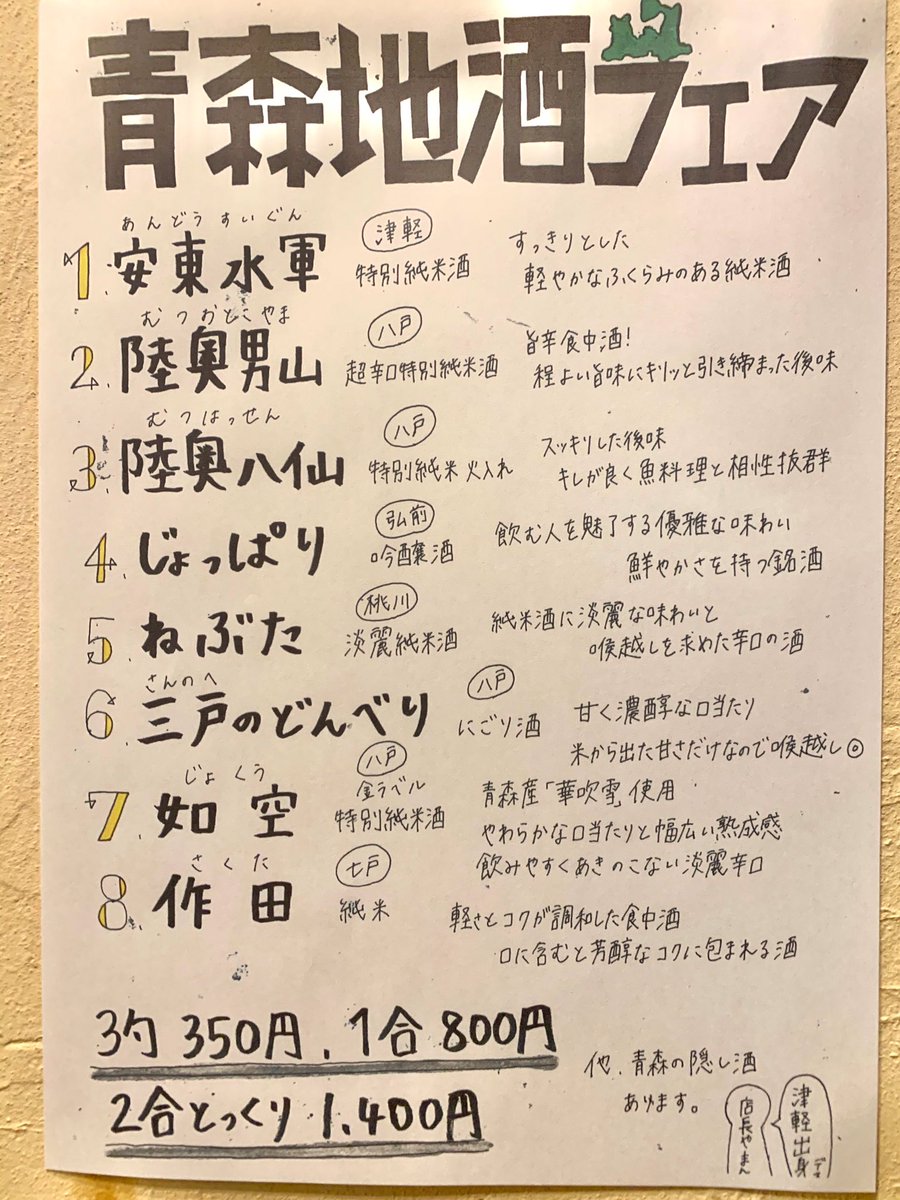 青森地酒フェア
あんどうすいぐん
1. 安東水軍 津軽 特別純米酒 すっきりとした
軽やかなふくらみのある純米酒
むつおとこやま
2. 陸奥男山 八戸 超辛口特別純米酒 旨辛食中酒!
程よい旨味にキリッと引き締まった後味
むつはっせん
3. 陸奥八仙 八戸 特別純米 火入れ スッキリした後味
キレが良く魚料理と相性抜群
4. じょっぱり 弘前 吟醸酒 飲む人を魅了する優雅な味わい
鮮やかさを持つ銘酒
5. ねぶた 桃川 淡麗純米酒 純米酒に淡麗な味わいと
喉越しを求めた辛口の酒
さんのへ
6. 三戸のどんべり 八戸 にごり酒 甘く濃醇な口当たり
米から出た甘さだけなので喉越し◎
じょくう
7. 如空 八戸 金ラベル 特別純米酒 青森産「華吹雪」使用
やわらかな口当たりと幅広い熟成感
飲みやすくあきのこない淡麗辛口
さくた
8. 作田 七戸 純米 軽さとコクが調和した食中酒
口に含むと芳醇なコクに包まれる酒
3勺 350円、1合 800円
2合とっくり 1,400円
他、青森の隠し酒
あります。
津軽出身です
店長やまん